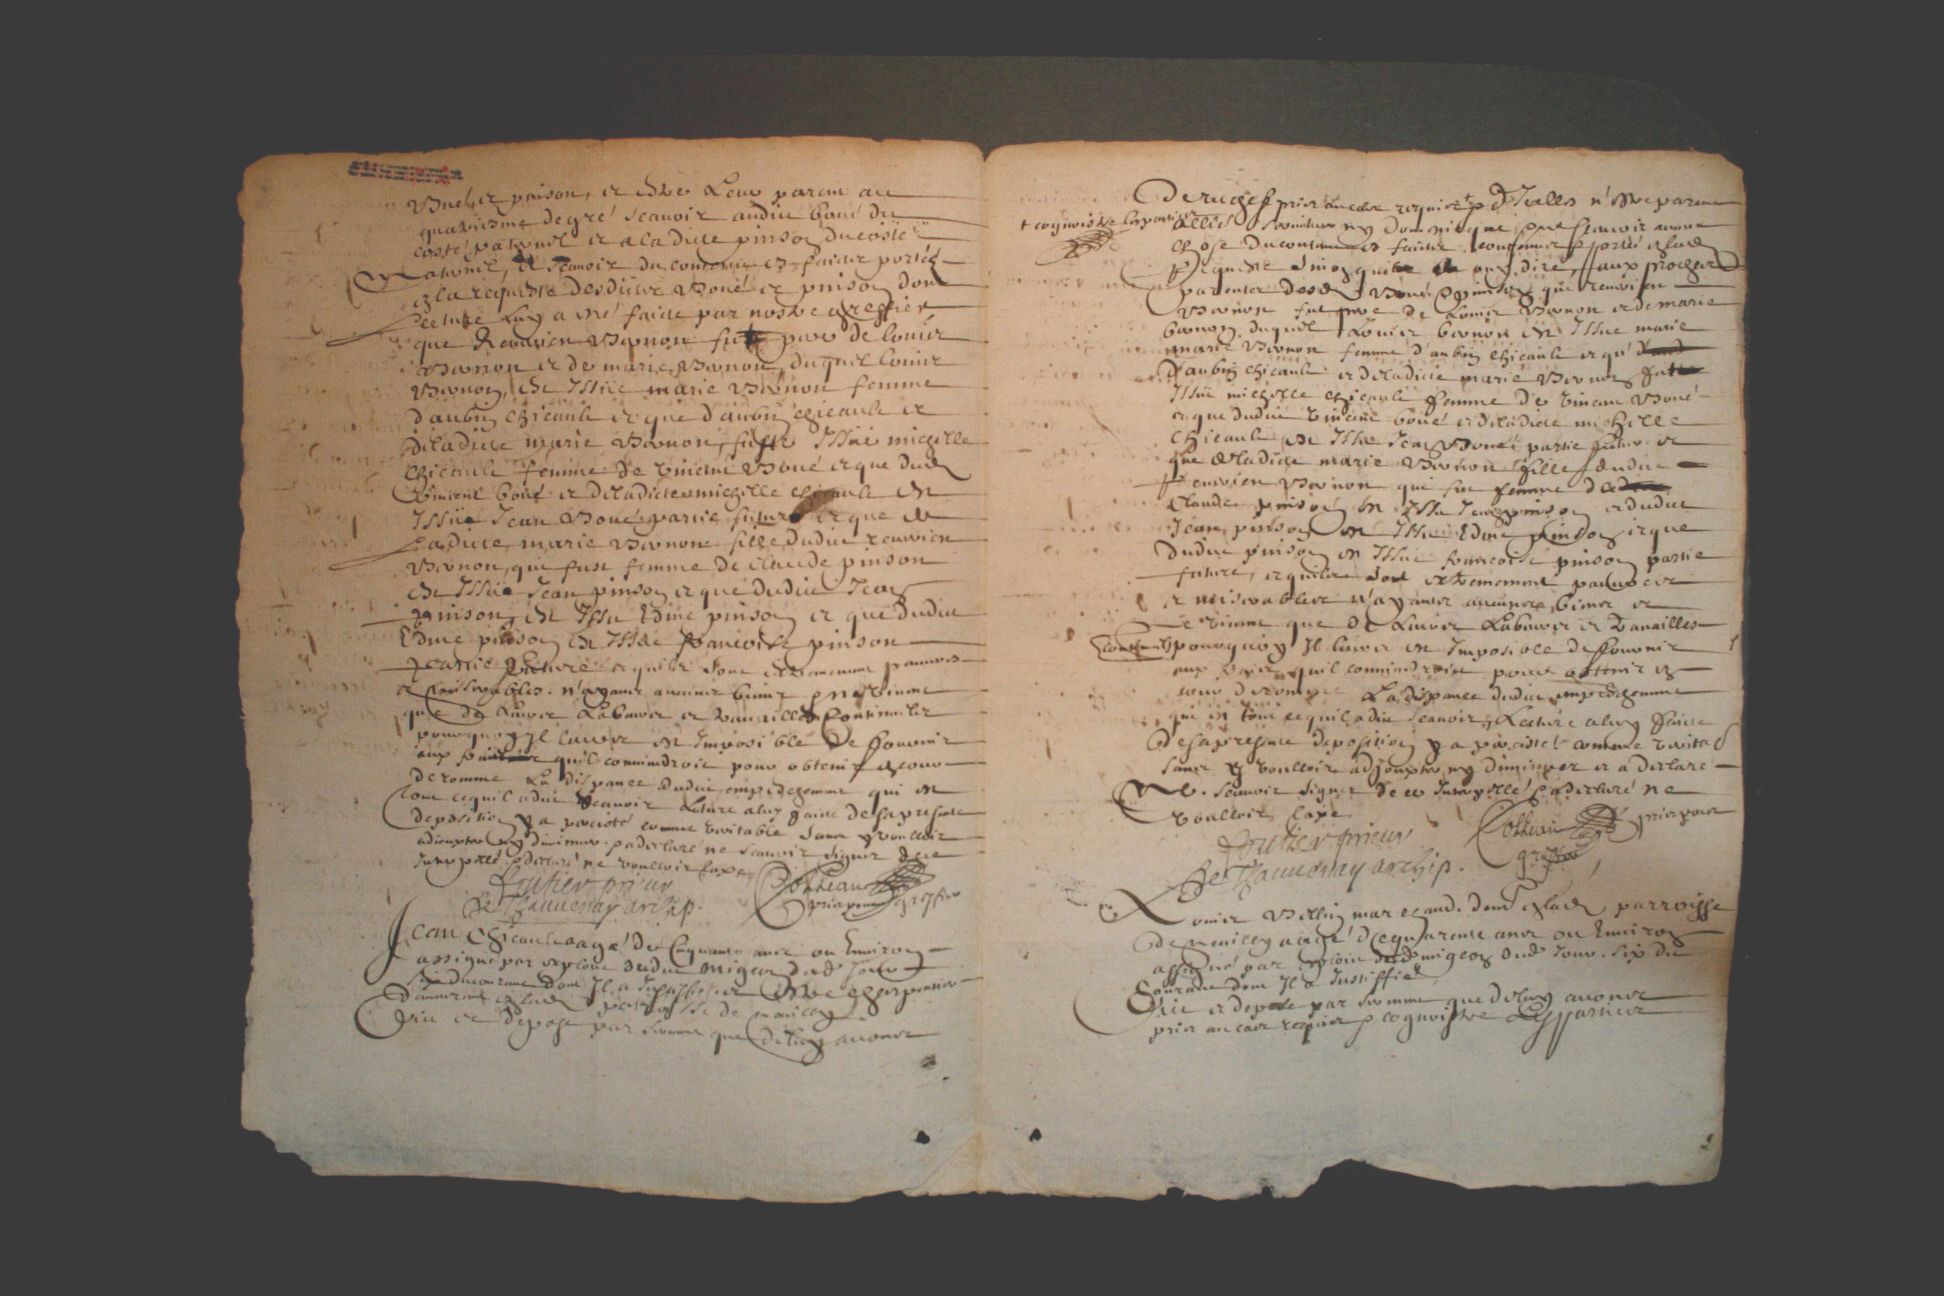 Boué et pinson, et estre Leur parent au
quatriesme degré scauoir audict boué du
costé paternel et a ladicte pinson du costé
Maternel, et scauoir du contenu es faictz portéz
en la requeste desdictz Boué et pinson dont
lecture Luy a esté faicte par nostre greffier
que Reuuien Vernon fut pere de louise
Vernon et de marie Vernon, duquel louise
Vernon, est Issüe marie Vernon femme
d'aubin chicault et que d'aubin chicault et
deladicte marie Vernon, fust Issüe michelle
chicault femme de Vincent Boué et que dud
Vincent boué et deladicte michelle chicault est
Issüe Jean Boué partie future et que de
Ladicte marie Vernon fille dudict reuuien
Vernon, qui fust femme de Claude pinson
est Issüe Jean pinson et que dudict Jean
pinson, est Issu Edme pinson et que dudict
Edme pinson est Issüe francoise pinson
partie future et quilz sont extremement pauures
et miserables. n'ayantz aucuns biens
que de Leurs Labeurs et trauailles
pourquoy Il leur est Imposible de fournir
aux qu'il conuiendroit pour obtenir en cour
de romme La dispance dudict empeschement qui est
tout ce quil a dict scauoir Lecture a luy faicte de sa presente
deposition y a persisté comme veritable sans y voulloir
adjouster ny diminuer. a declaré ne scauoir signer de ce
Interpellé a declaré ne voulloir taxe
prieur
archip.
greffier
Jean Chicault aagé de Cinquante ans ou Enuiron
assigné par exploict dudict migeon dud Jour
Six du courant dont Il a Justiffié et
demeurant en lad parroisse de
Dict et depose par serment que de luy auons
pris au cas requis p d'Icelles n'estre parent
+ cognoistre les parties
allié seruiteur ny domestique scauoir
chose du contenu es faictz portéz en lad
Requeste sinon ouy dire, aux proches
parentz desd Boué et pinson que reuuien
Vernon fut pere de Louise Vernon et de marie
Vernon duquel Louise Vernon est Issüe marie
marie Vernon femme d'aubin chicault et qu'
d'aubin chicault et deladicte marie Vernon
Issüe michelle chicault femme de Vincent Boué
et que dudict Vincent boué et deladicte michelle
chicault est Issüe Jean Boué partie future et
que deladicte marie Vernon fille dudict
Reuuien Vernon qui fut femme de
Claude pinson est Issu Jean pinson et dudict
Jean pinson est Issu Edme pinson et que
dudict pinson est Issüe francoise pinson partie
future, et quilz sont extremement pauures
et miserables n'ayantz aucuns biens et
que de Leurs Labeurs et trauailles
pourquoy Il leur est Imposible de fournir
aux quil conuiendroit pour obtenir en
cour de romme La dispance dudict empeschement
qui est tout ce quil a dict scauoir, Lecture a luy faicte
de sa presente deposition y a persisté comme veritable
sans y voulloir adjouster ny diminuer et a declaré
Ne scauoir signer de ce Interpellé a declaré ne
Voulloir taxe
prieur
archip.
greffier
demt en lad parroisse
aagé de quarente ans ou Enuiron
assigné par exploict dud migeon dud Jour Six du
Courant dont Il a Justiffié
Dict et depose par serment que de luy auons
pris au cas requis cognoistre Les parties